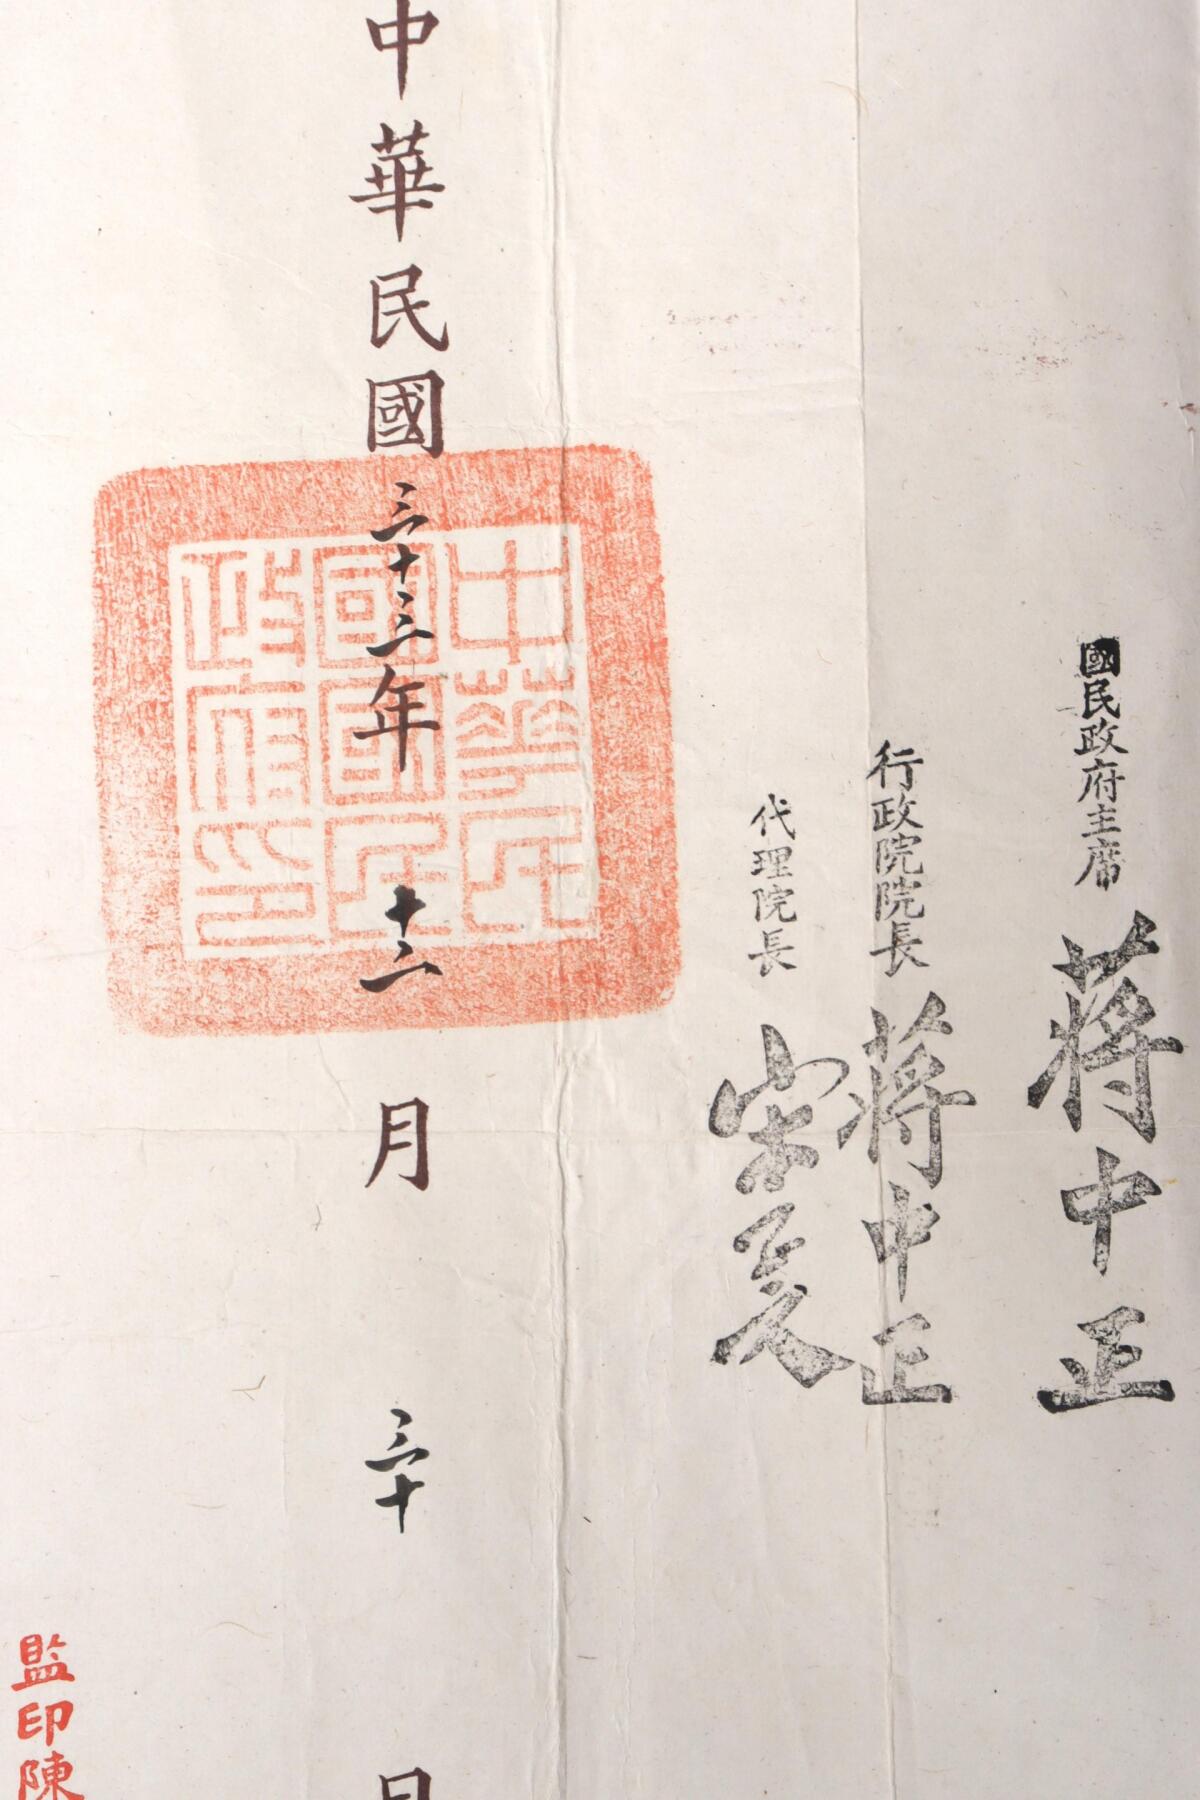 國民政府主席 蔣中正
行政院院長 蔣中正
代理院長 宋子文
中華民國三十三年十二月三十日
中華民
國國民
政府印
監印陳